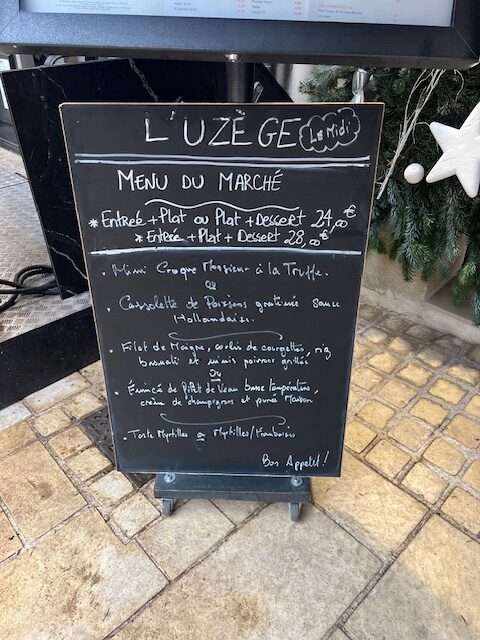 L'UZÈGE Le Midi
MENU DU MARCHÉ
* Entrée + Plat ou Plat + Dessert 24,00€
* Entrée + Plat + Dessert 28,00€
. Mini Croque Monsieur à la Truffe.
ou
. Cassolette de Poissons gratinée sauce
Hollandaise.
. Filet de Maigre, coulis de courgettes, riz
basmati et minis poivrons grillés
ou
. Émincé de Filet de Veau basse température,
crème de champignons et purée Maison
. Tarte Myrtilles ou Myrtilles/Framboises
Bon Appetit!